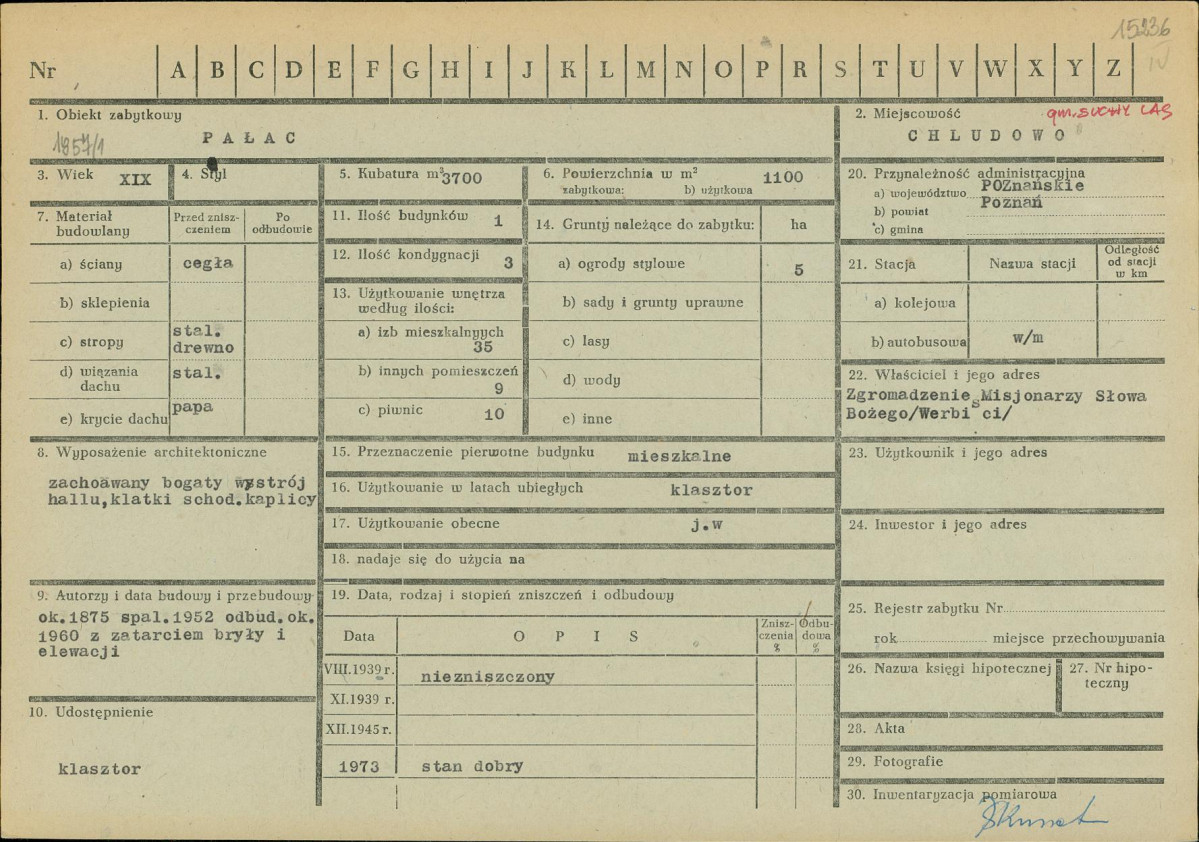 15236
IV
Nr A B C D E F G H I J K L M N O P R S T U V W X Y Z
1. Obiekt zabytkowy
1857/1
PAŁAC
2. Miejscowość
gm. SUCHY LAS
CHLUDOWO
3. Wiek XIX
4. Styl
5. Kubatura m³ 3700
6. Powierzchnia w m² 1100
zabytkowa: b) użytkowa
20. Przynależność administracyjna
a) województwo POZnańskie
b) powiat Poznań
c) gmina
7. Materiał budowlany
Przed zniszczeniem
Po odbudowie
a) ściany cegła
b) sklepienia
c) stropy stal. drewno
d) wiązania dachu stal.
e) krycie dachu papa
11. Ilość budynków 1
12. Ilość kondygnacji 3
13. Użytkowanie wnętrza
według ilości:
a) izb mieszkalnyych
35
b) innych pomieszczeń
9
c) piwnic 10
14. Grunty należące do zabytku: ha
a) ogrody stylowe 5
b) sady i grunty uprawne
c) lasy
d) wody
e) inne
21. Stacja
Nazwa stacji
Odległość
od stacji
w km
a) kolejowa
b) autobusowa w/m
22. Właściciel i jego adres
Zgromadzenie Misjonarzy Słowa
Bożego/Werbisci/
8. Wyposażenie architektoniczne
zachoawany bogaty wystrój
hallu,klatki schod.kaplicy
15. Przeznaczenie pierwotne budynku mieszkalne
16. Użytkowanie w latach ubiegłych klasztor
17. Użytkowanie obecne j.w
18. nadaje się do użycia na
23. Użytkownik i jego adres
24. Inwestor i jego adres
9. Autorzy i data budowy i przebudowy
ok.1875 spal.1952 odbud.ok.
1960 z zatarciem bryły i
elewacji
19. Data, rodzaj i stopień zniszczeń i odbudowy
Data
OPIS
Zniszczenia %
Odbudowa %
VIII.1939 r. niezniszczony
XI.1939 r.
XII.1945 r.
1973 stan dobry
10. Udostępnienie
klasztor
25. Rejestr zabytku Nr
rok miejsce przechowywania
26. Nazwa księgi hipotecznej
27. Nr hipoteczny
28. Akta
29. Fotografie
30. Inwentaryzacja pomiarowa